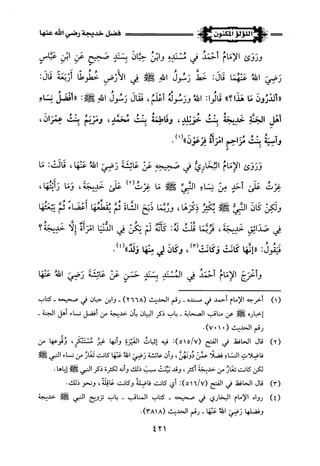 اللؤلؤ المكنون
فضل خديجة رضي الله عنها
وروى الإمام أحمد في مسنده وابن حبان بسند صحيح عن ابن عباس
رضي الله عنهما قال: خط رسول الله ﷺ في الأرض خطوطا أربعة قال:
«أتدرون ما هذا؟» قالوا: الله ورسوله أعلم، فقال رسول الله ﷺ: «أفضل نساء
أهل الجنة خديجة بنت خويلد، وفاطمة بنت محمد، ومريم بنت عمران،
وآسية بنت مزاحم امرأة فرعون»(١).
وروى الإمام البخاري في صحيحه عن عائشة رضي الله عنها، قالت: ما
غرت على أحد من نساء النبي ﷺ ما غرت(٢) على خديجة، وما رأيتها،
ولكن كان النبي ﷺ يكثر ذكرها، وربما ذبح الشاة ثم يقطعها أعضاء ثم يبعثها
في صدائق خديجة، فربما قلت له: كأنه لم يكن في الدنيا امرأة إلا خديجة؟
فيقول: «إنها كانت وكانت(٣)، وكان لي منها ولد»(٤).
وأخرج الإمام أحمد في المسند بسند حسن عن عائشة رضي الله عنها
(١) أخرجه الإمام أحمد في مسنده - رقم الحديث (٢٦٦٨) - وابن حبان في صحيحه - كتاب
إخباره ﷺ عن مناقب الصحابة - باب ذكر البيان بأن خديجة من أفضل نساء أهل الجنة -
رقم الحديث (٧٠١٠).
(٢) قال الحافظ في الفتح (٥١٥/٧): فيه إثبات الغيرة وأنها غير مستنكر وقوعها من
فاضلات النساء فضلا عمن دونهن، وأن عائشة رضي الله عنها كانت تغار من نساء النبي ﷺ
لكن كانت تغار من خديجة أكثر، وقد بينت سبب ذلك وأنه لكثرة ذكر النبي ﷺ إياها.
(٣) قال الحافظ في الفتح (٥١٦/٧): أي كانت فاضلة وكانت عاقلة، ونحو ذلك.
(٤) رواه الإمام البخاري في صحيحه - كتاب المناقب - باب تزويج النبي ﷺ خديجة
وفضلها رضي الله عنها - رقم الحديث (٣٨١٨).
٤٢١